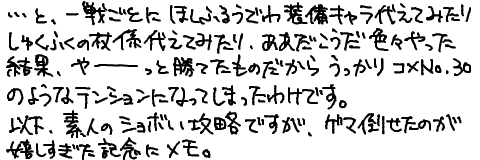 …と、一戦ごとに ほしふるうでわ装備キャラ代えてみたり
しゅくふくの杖係代えてみたり、ああだこうだ色々やった
結果、や――っと勝てたものだから うっかり コメNo.30
のようなテンションになってしまったわけです。
以下、素人のショボい攻略ですが、ゲマ倒せたのが
嬉しすぎた記念にメモ。